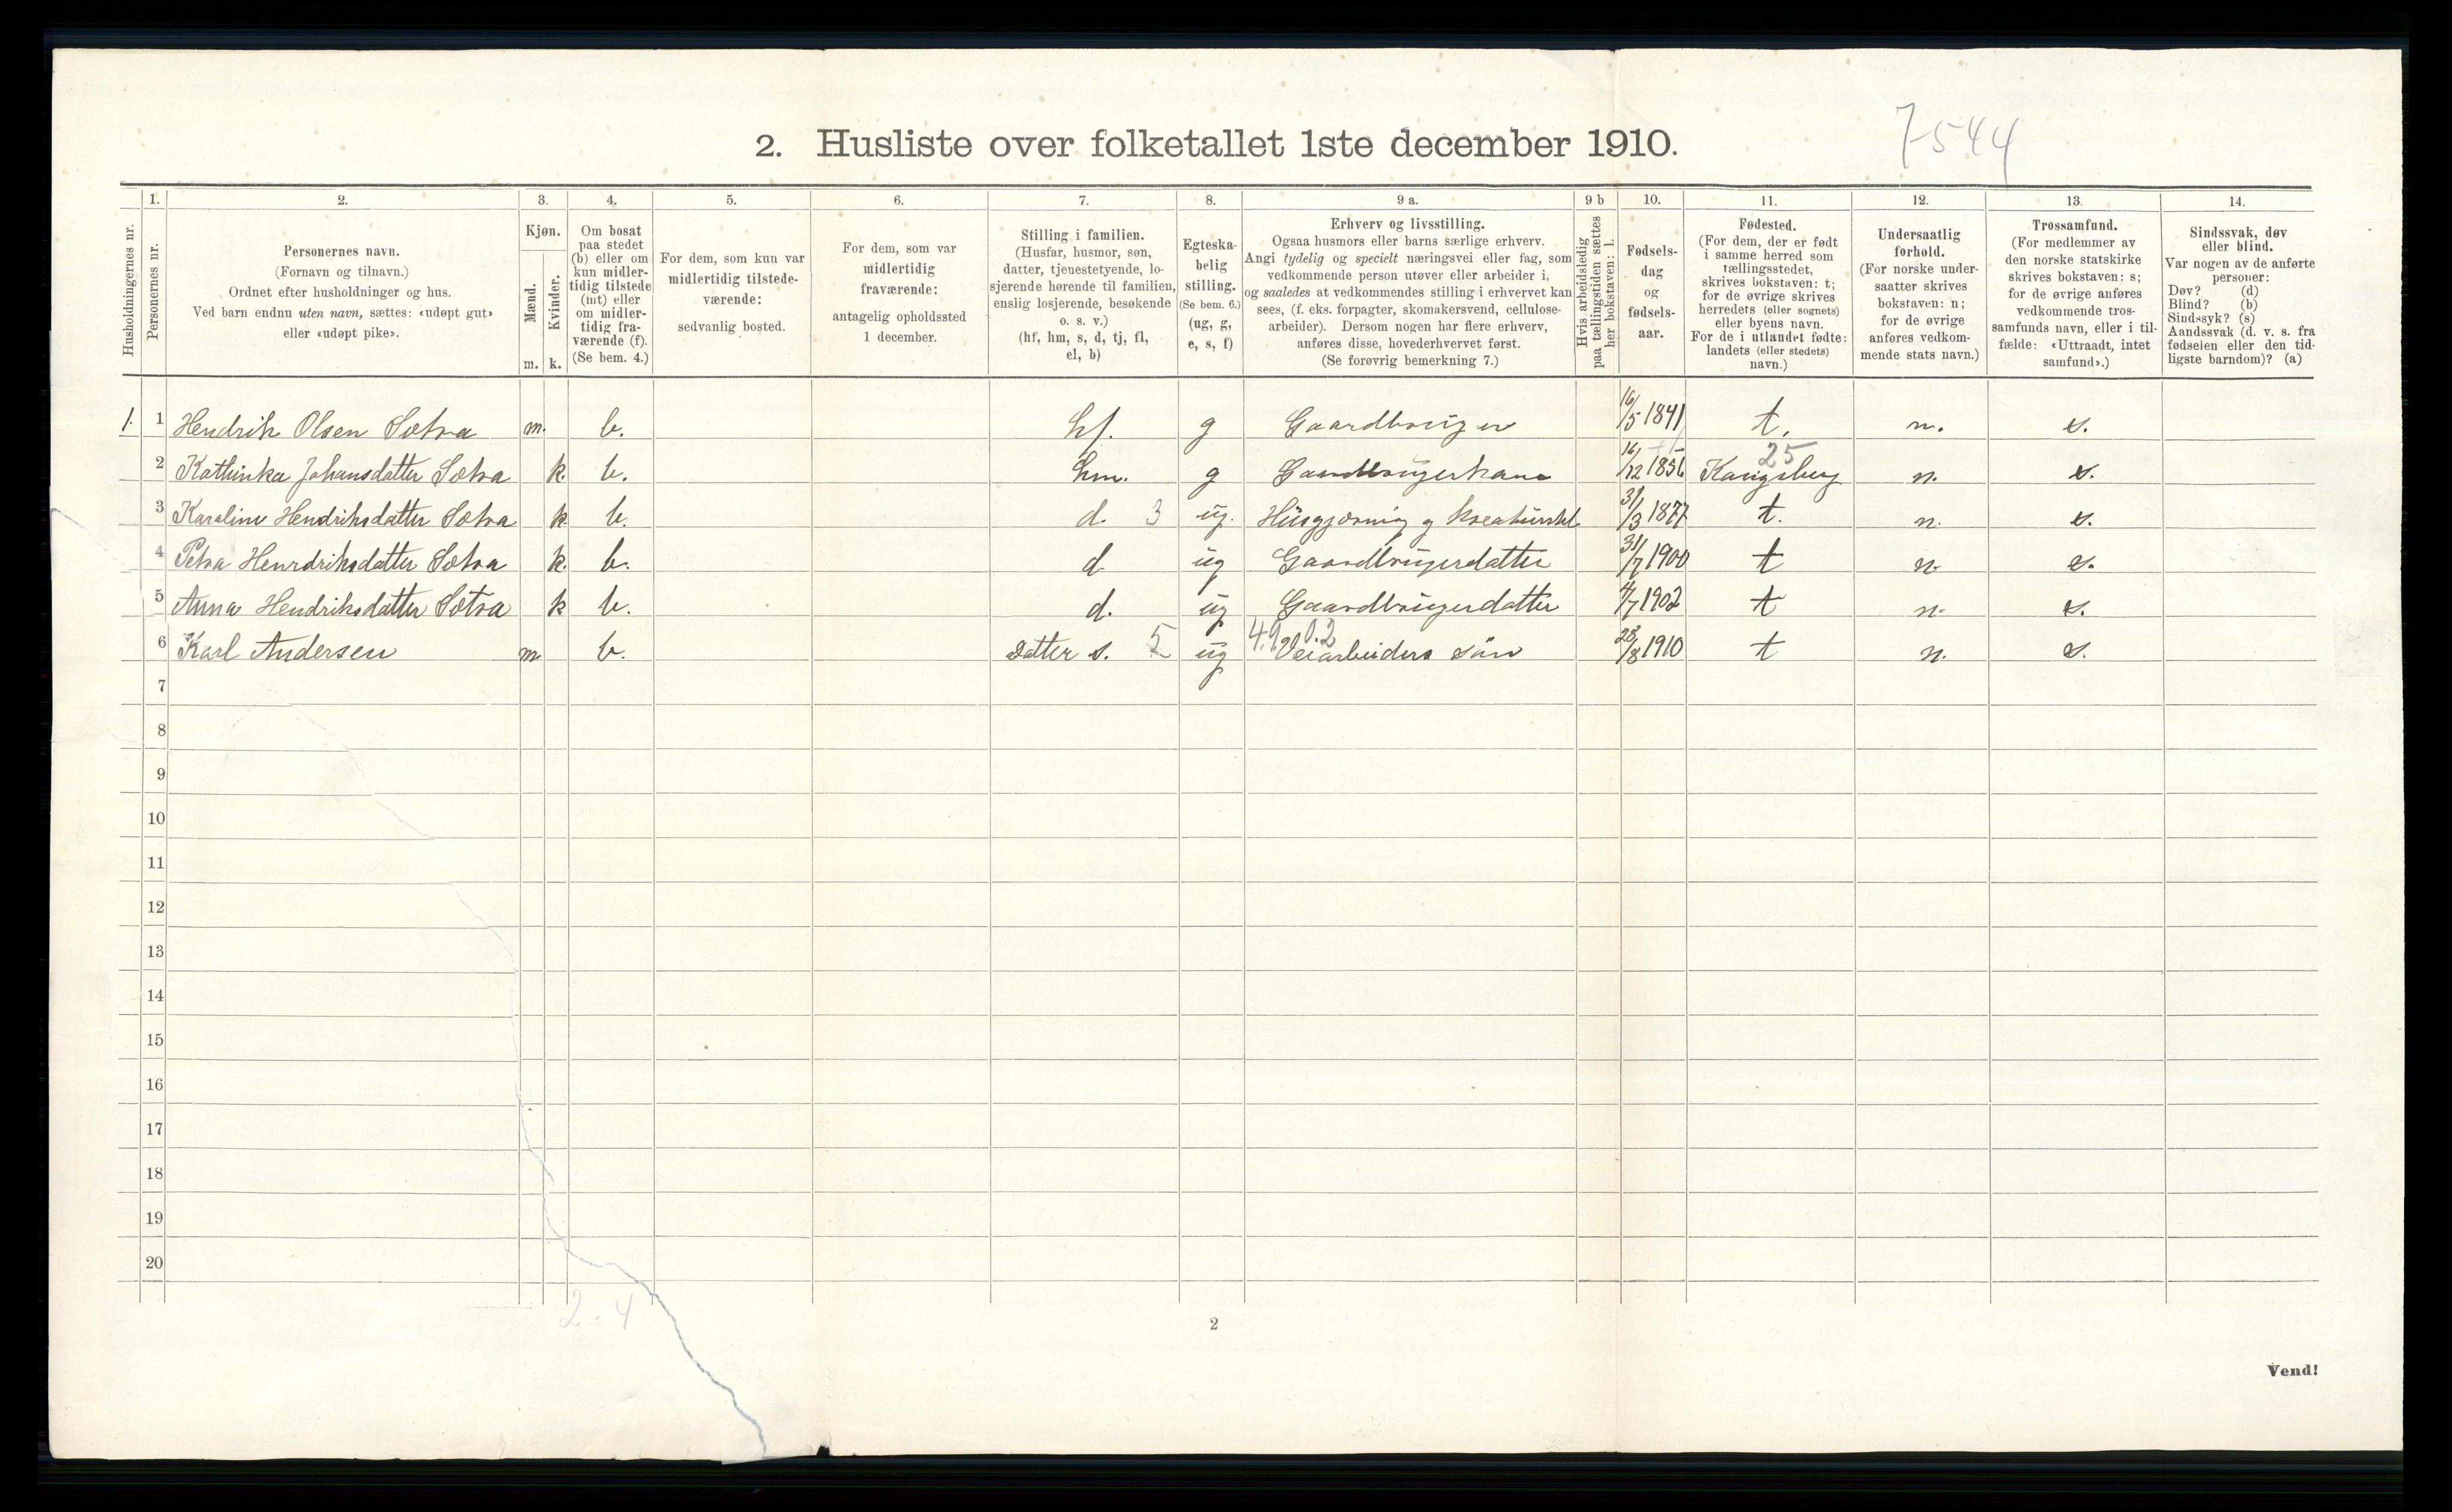 7544
2. Husliste over folketallet 1ste december 1910.
Husholdningernes nr.
1.
Personernes nr.
2.
Personernes navn.
(Fornavn og tilnavn.)
Ordnet efter husholdninger og hus.
Ved barn endnu uten navn, sættes: «udøpt gut»
eller «udøpt pike».
3.
Kjøn.
Mænd.
Kvinder.
m. k.
4.
Om bosat
paa stedet
(b) eller om
kun midler-
tidig tilstede
(mt) eller
om midler-
tidig fra-
værende (f).
(Se bem. 4.)
5.
For dem, som kun var
midlertidig tilstede-
værende:
sedvanlig bosted.
6.
For dem, som var
midlertidig
fraværende:
antagelig opholdssted
1 december.
7.
Stilling i familien.
(Husfar, husmor, søn,
datter, tjenestetyende, lo-
sjerende hørende til familien,
enslig losjerende, besøkende
o. s. v.)
(hf, hm, s, d, tj, fl,
el, b)
8.
Egteska-
belig
stilling.
(Se bem. 6.)
(ug, g,
e, s, f)
9 a.
Erhverv og livsstilling.
Ogsaa husmors eller barns særlige erhverv.
Angi tydelig og specielt næringsvei eller fag, som
vedkommende person utøver eller arbeider i,
og saaledes at vedkommendes stilling i erhvervet kan
sees, (f. eks. forpagter, skomakersvend, cellulose-
arbeider). Dersom nogen har flere erhverv,
anføres disse, hovederhvervet først.
(Se forøvrig bemerkning 7.)
9 b
Hvis arbeidsledig
paa tællingstiden sættes
her bokstaven: l.
10.
Fødsels-
dag
og
fødsels-
aar.
11.
Fødested.
(For dem, der er født
i samme herred som
tællingsstedet,
skrives bokstaven: t;
for de øvrige skrives
herredets (eller sognets)
eller byens navn.
For de i utlandet fødte:
landets (eller stedets)
navn.)
12.
Undersaatlig
forhold.
(For norske under-
saatter skrives
bokstaven: n;
for de øvrige
anføres vedkom-
mende stats navn.)
13.
Trossamfund.
(For medlemmer av
den norske statskirke
skrives bokstaven: s;
for de øvrige anføres
vedkommende tros-
samfunds navn, eller i til-
fælde: «Uttraadt, intet
samfund».)
14.
Sindssvak, døv
eller blind.
Var nogen av de anførte
personer:
Døv? (d)
Blind? (b)
Sindssyk? (s)
Aandssvak (d. v. s. fra
fødselen eller den tid-
ligste barndom)? (a)
1. 1 Hendrik Olsen Sætra m. b. hf. g Gaardbruger 16/5 1841 t. n. s.
2 Kathinka Johansdatter Sætra k. b. hm. g Gaardbrugerkone 16/12 1856 25 Kongsberg n. s.
3 Karoline Hendriksdatter Sætra k b. d. 3 ug. Husgjerning og kreaturstel 31/3 1877 t. n. s.
4 Petra Henrdriksdatter Sætra k. b. d ug Gaardbrugerdatter 31/7 1900 t n. s.
5 Anna Hendriksdatter Sætra k b. d. ug Gaardbrugerdatter 4/7 1902 t n. s.
6 Karl Andersen m b. Datter s. 5 ug 4.9 0.2 Veiarbeiders søn 28/8 1910 t n. s.
7
8
9
10
11
12
13
14
15
16
17
18
19
20
2-4
2
Vend!